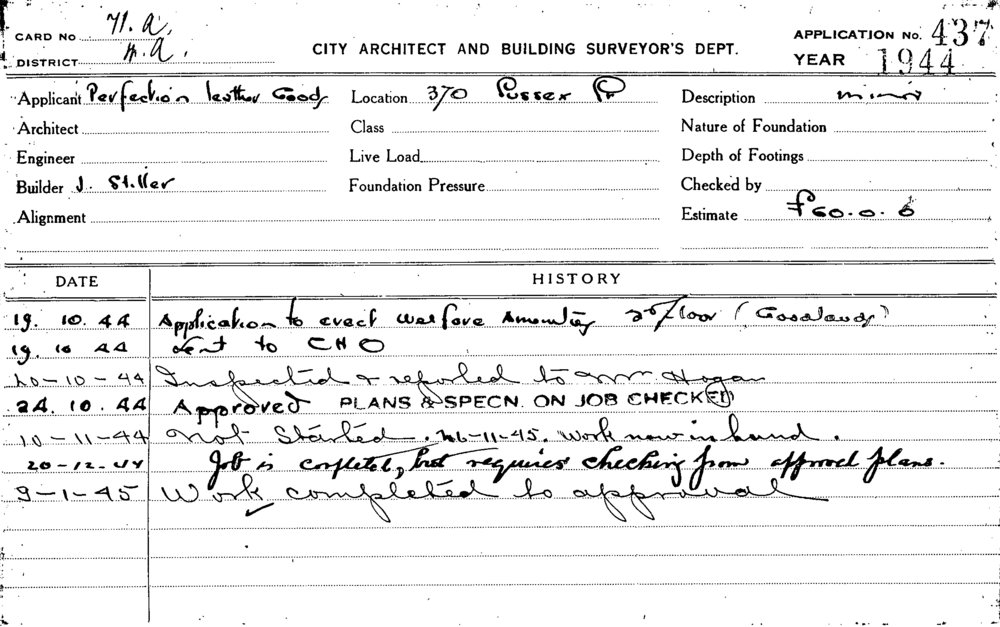 CARD No 71. a.
DISTRICT m. a.
CITY ARCHITECT AND BUILDING SURVEYOR'S DEPT.
APPLICATION No. 437
YEAR 1944
Applicant Perfection leather Goods Location 370 Sussex St Description minor
Architect Class Nature of Foundation
Engineer Live Load Depth of Footings
Builder J. Stiller Foundation Pressure Checked by
Alignment Estimate £60.0.0
DATE HISTORY
19. 10. 44 Application to erect welfare Amenities Floor
19. 10 44 Sent to CHO
20-10-44 Inspected & reported to Mr Hogan
24. 10. 44 Approved PLANS & SPECN. ON JOB CHECKED
10-11-44 Not Started. 26-11-45. Work now in hand.
20-12.44 Job is completed, but requires checking from approved plans.
9-1-45 Work completed to approval